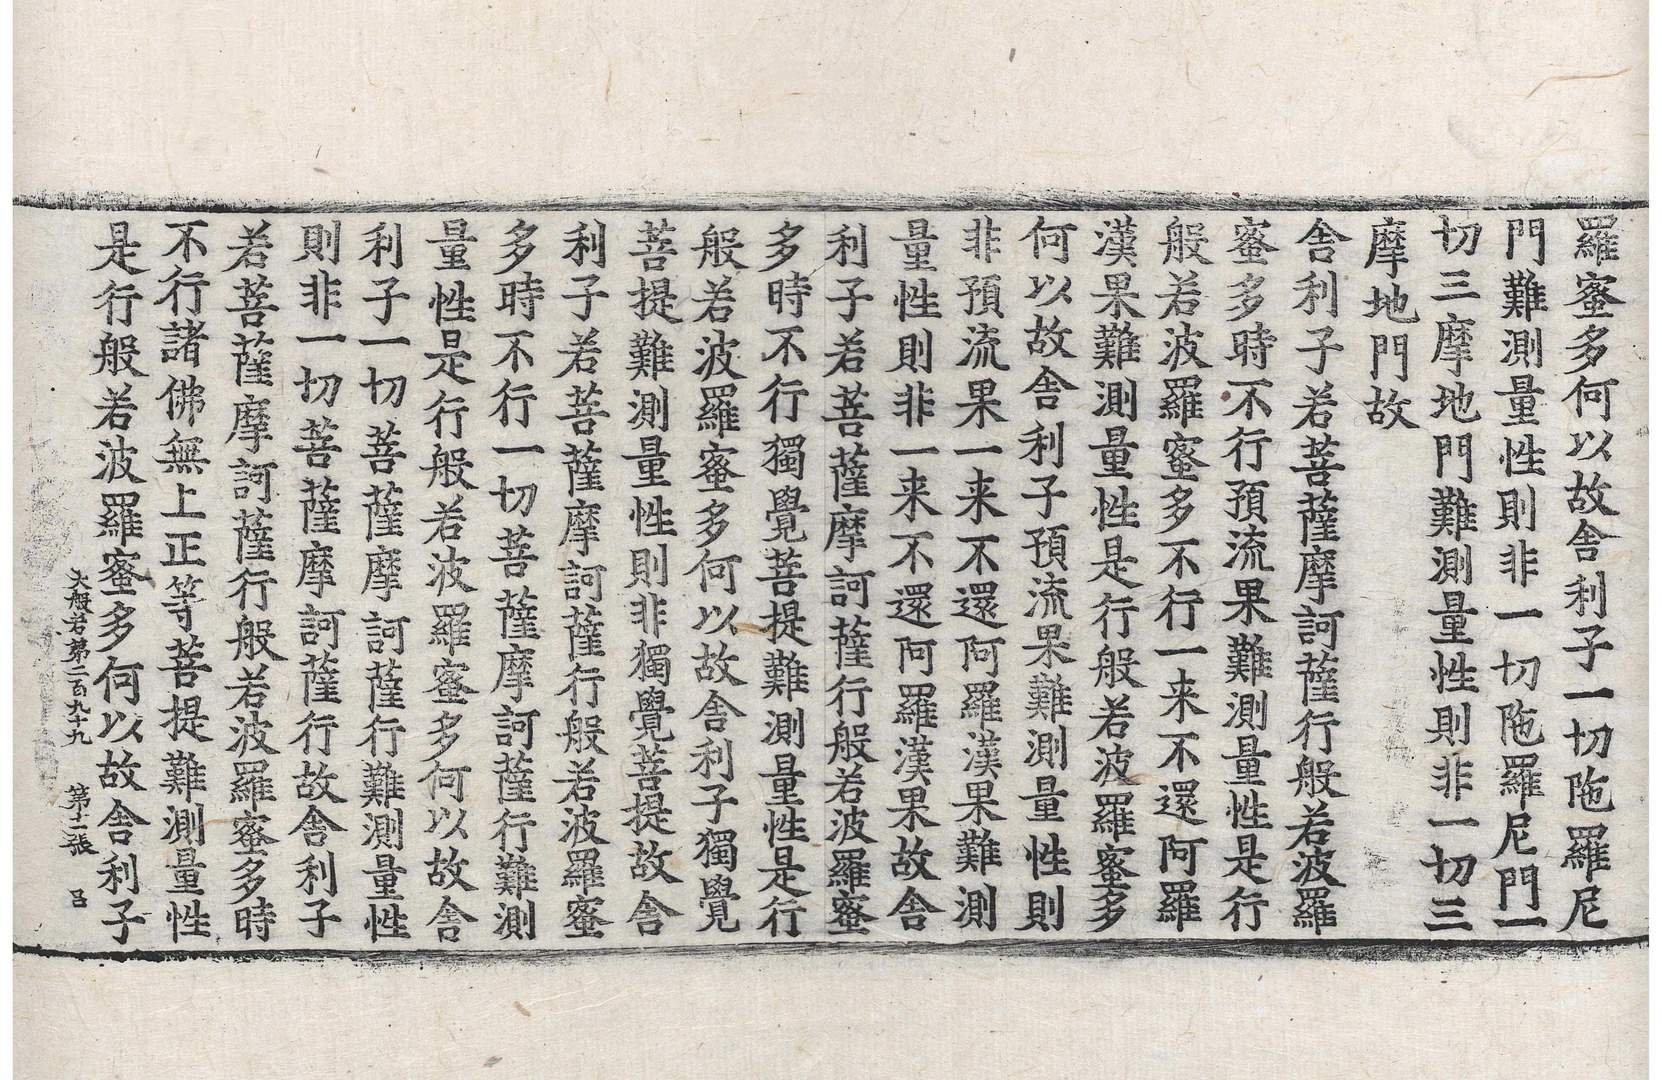 羅蜜多何以故舍利子一切陁羅尼
門難測量性則非一切陁羅尼門一
切三摩地門難測量性則非一切三
摩地門故
舍利子若菩薩摩訶薩行般若波羅
蜜多時不行預流果難測量性是行
般若波羅蜜多不行一来不還阿羅
漢果難測量性是行般若波羅蜜多
何以故舍利子預流果難測量性則
非預流果一来不還阿羅漢果難測
量性則非一来不還阿羅漢果故舍
利子若菩薩摩訶薩行般若波羅蜜
多時不行獨覺菩提難測量性是行
般若波羅蜜多何以故舍利子獨覺
菩提難測量性則非獨覺菩提故舍
利子若菩薩摩訶薩行般若波羅蜜
多時不行一切菩薩摩訶薩行難測
量性是行般若波羅蜜多何以故舍
利子一切菩薩摩訶薩行難測量性
則非一切菩薩摩訶薩行故舍利子
若菩薩摩訶薩行般若波羅蜜多時
不行諸佛無上正等菩提難測量性
是行般若波羅蜜多何以故舍利子
大般若第二百九十九 第十二張 吕